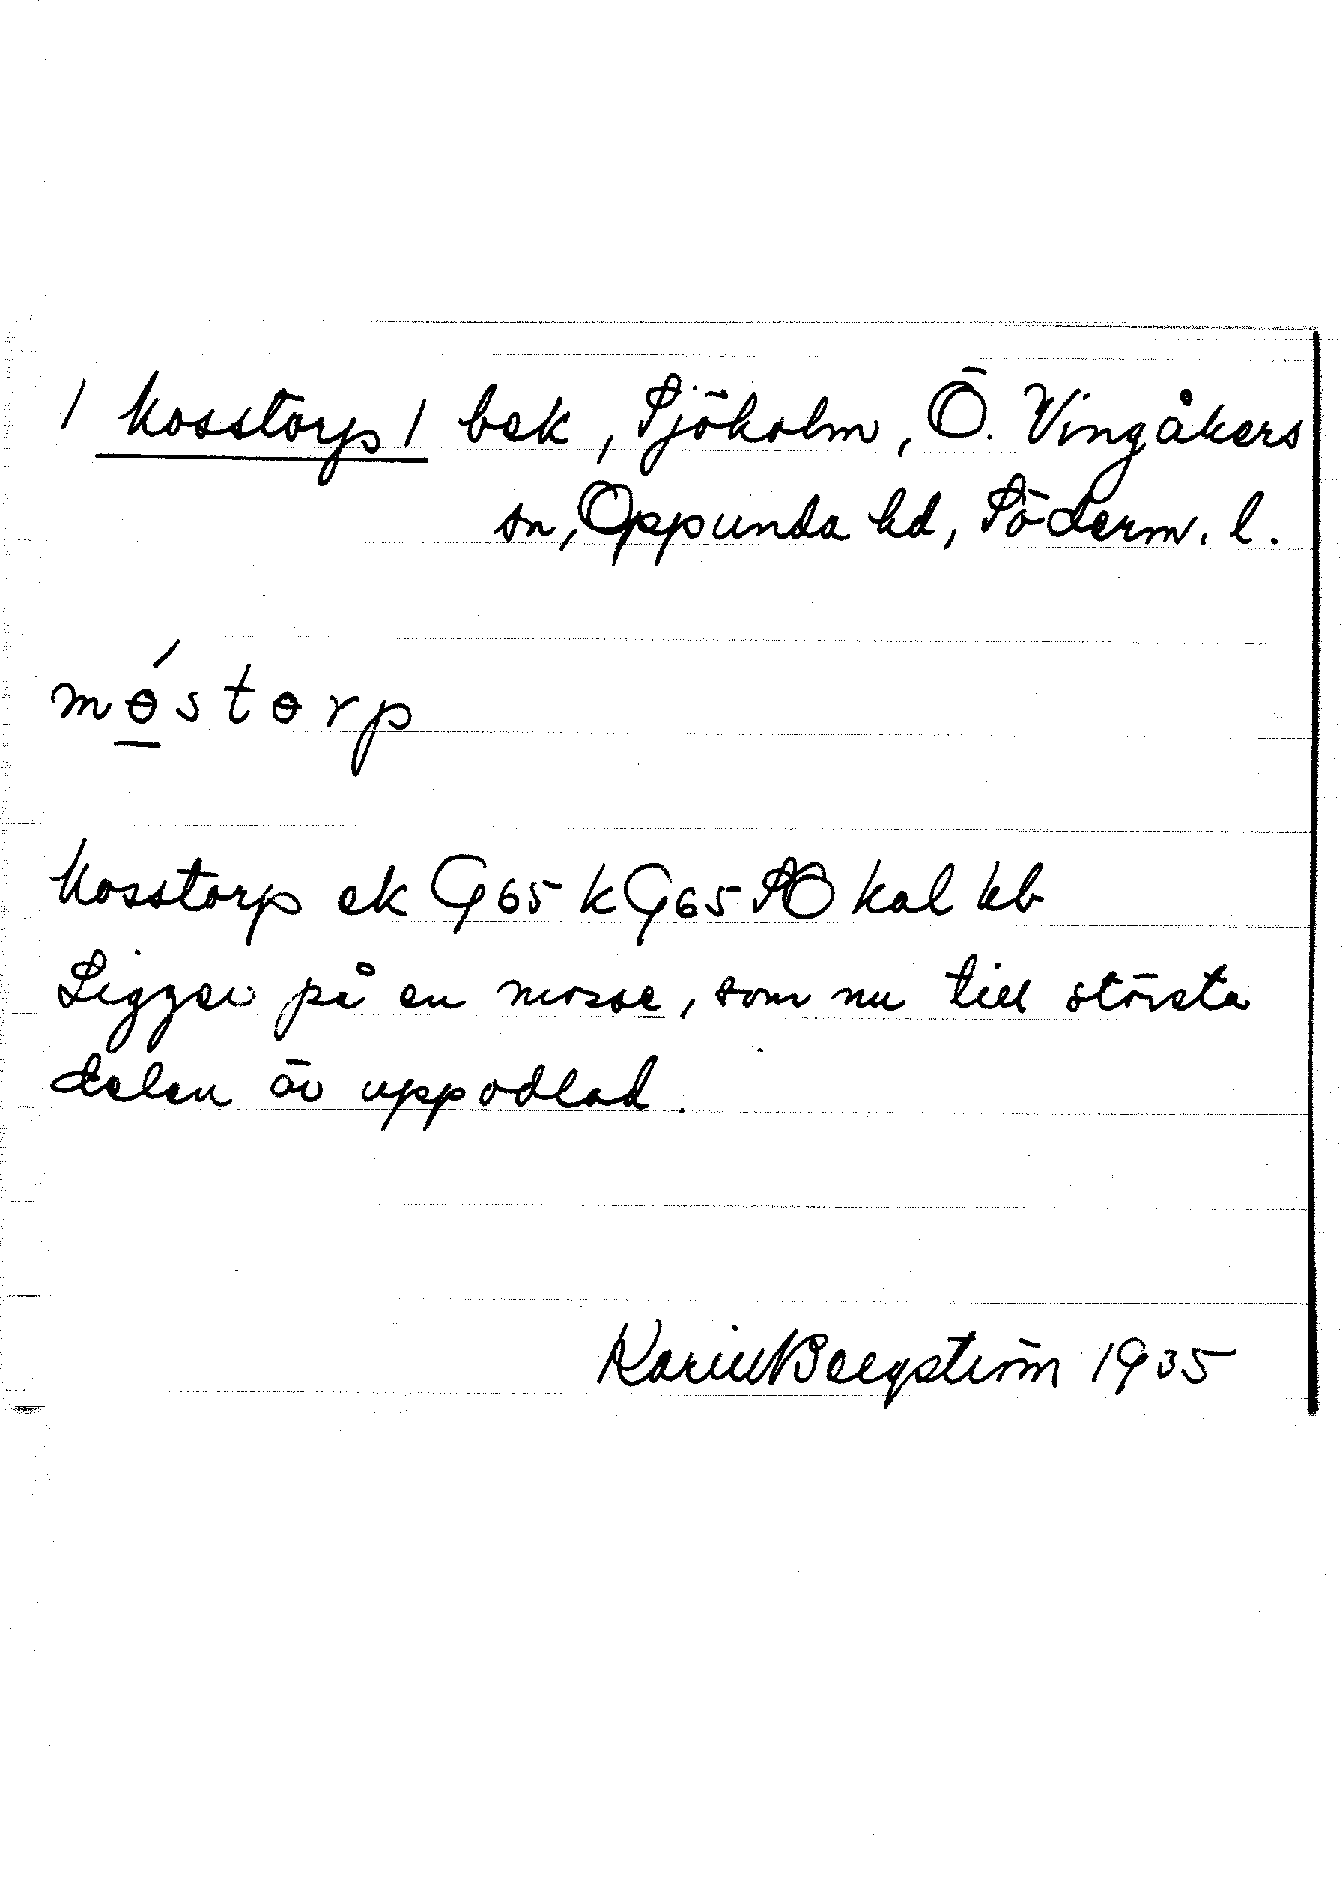 / Mosstorp / bek, Sjöholm, Ö. Vingåkers
sn, Oppunda hd, Söderm. l.
mɵ́stɵrp
Mosstorp ek G65 k G65 SO kal hb
Ligger på en mosse, som nu till största
delen är uppodlad.
Karin Bergström 1935